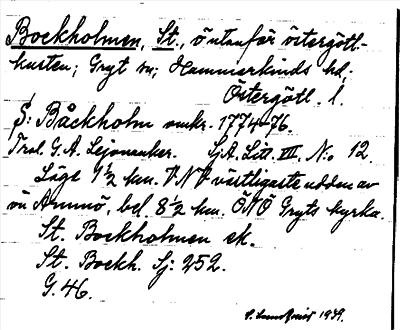 Bockholmen, St., ö utanför östergötl.-
kusten; Gryt sn; Hammarkinds hd,
Östergötl. l.
§: Båckholm omkr. 1774-76.
Trol. G. A. Leijonancker. SjA. Litt. VII, No 12.
Läge 1 1/2 km. VNV västligaste udden av
ön Ämmö, bel. 8 1/2 km. ÖNÖ Gryts kyrka.
St. Bockholmen ek.
St. Bockh. Sj: 252.
G. 46.
1939.